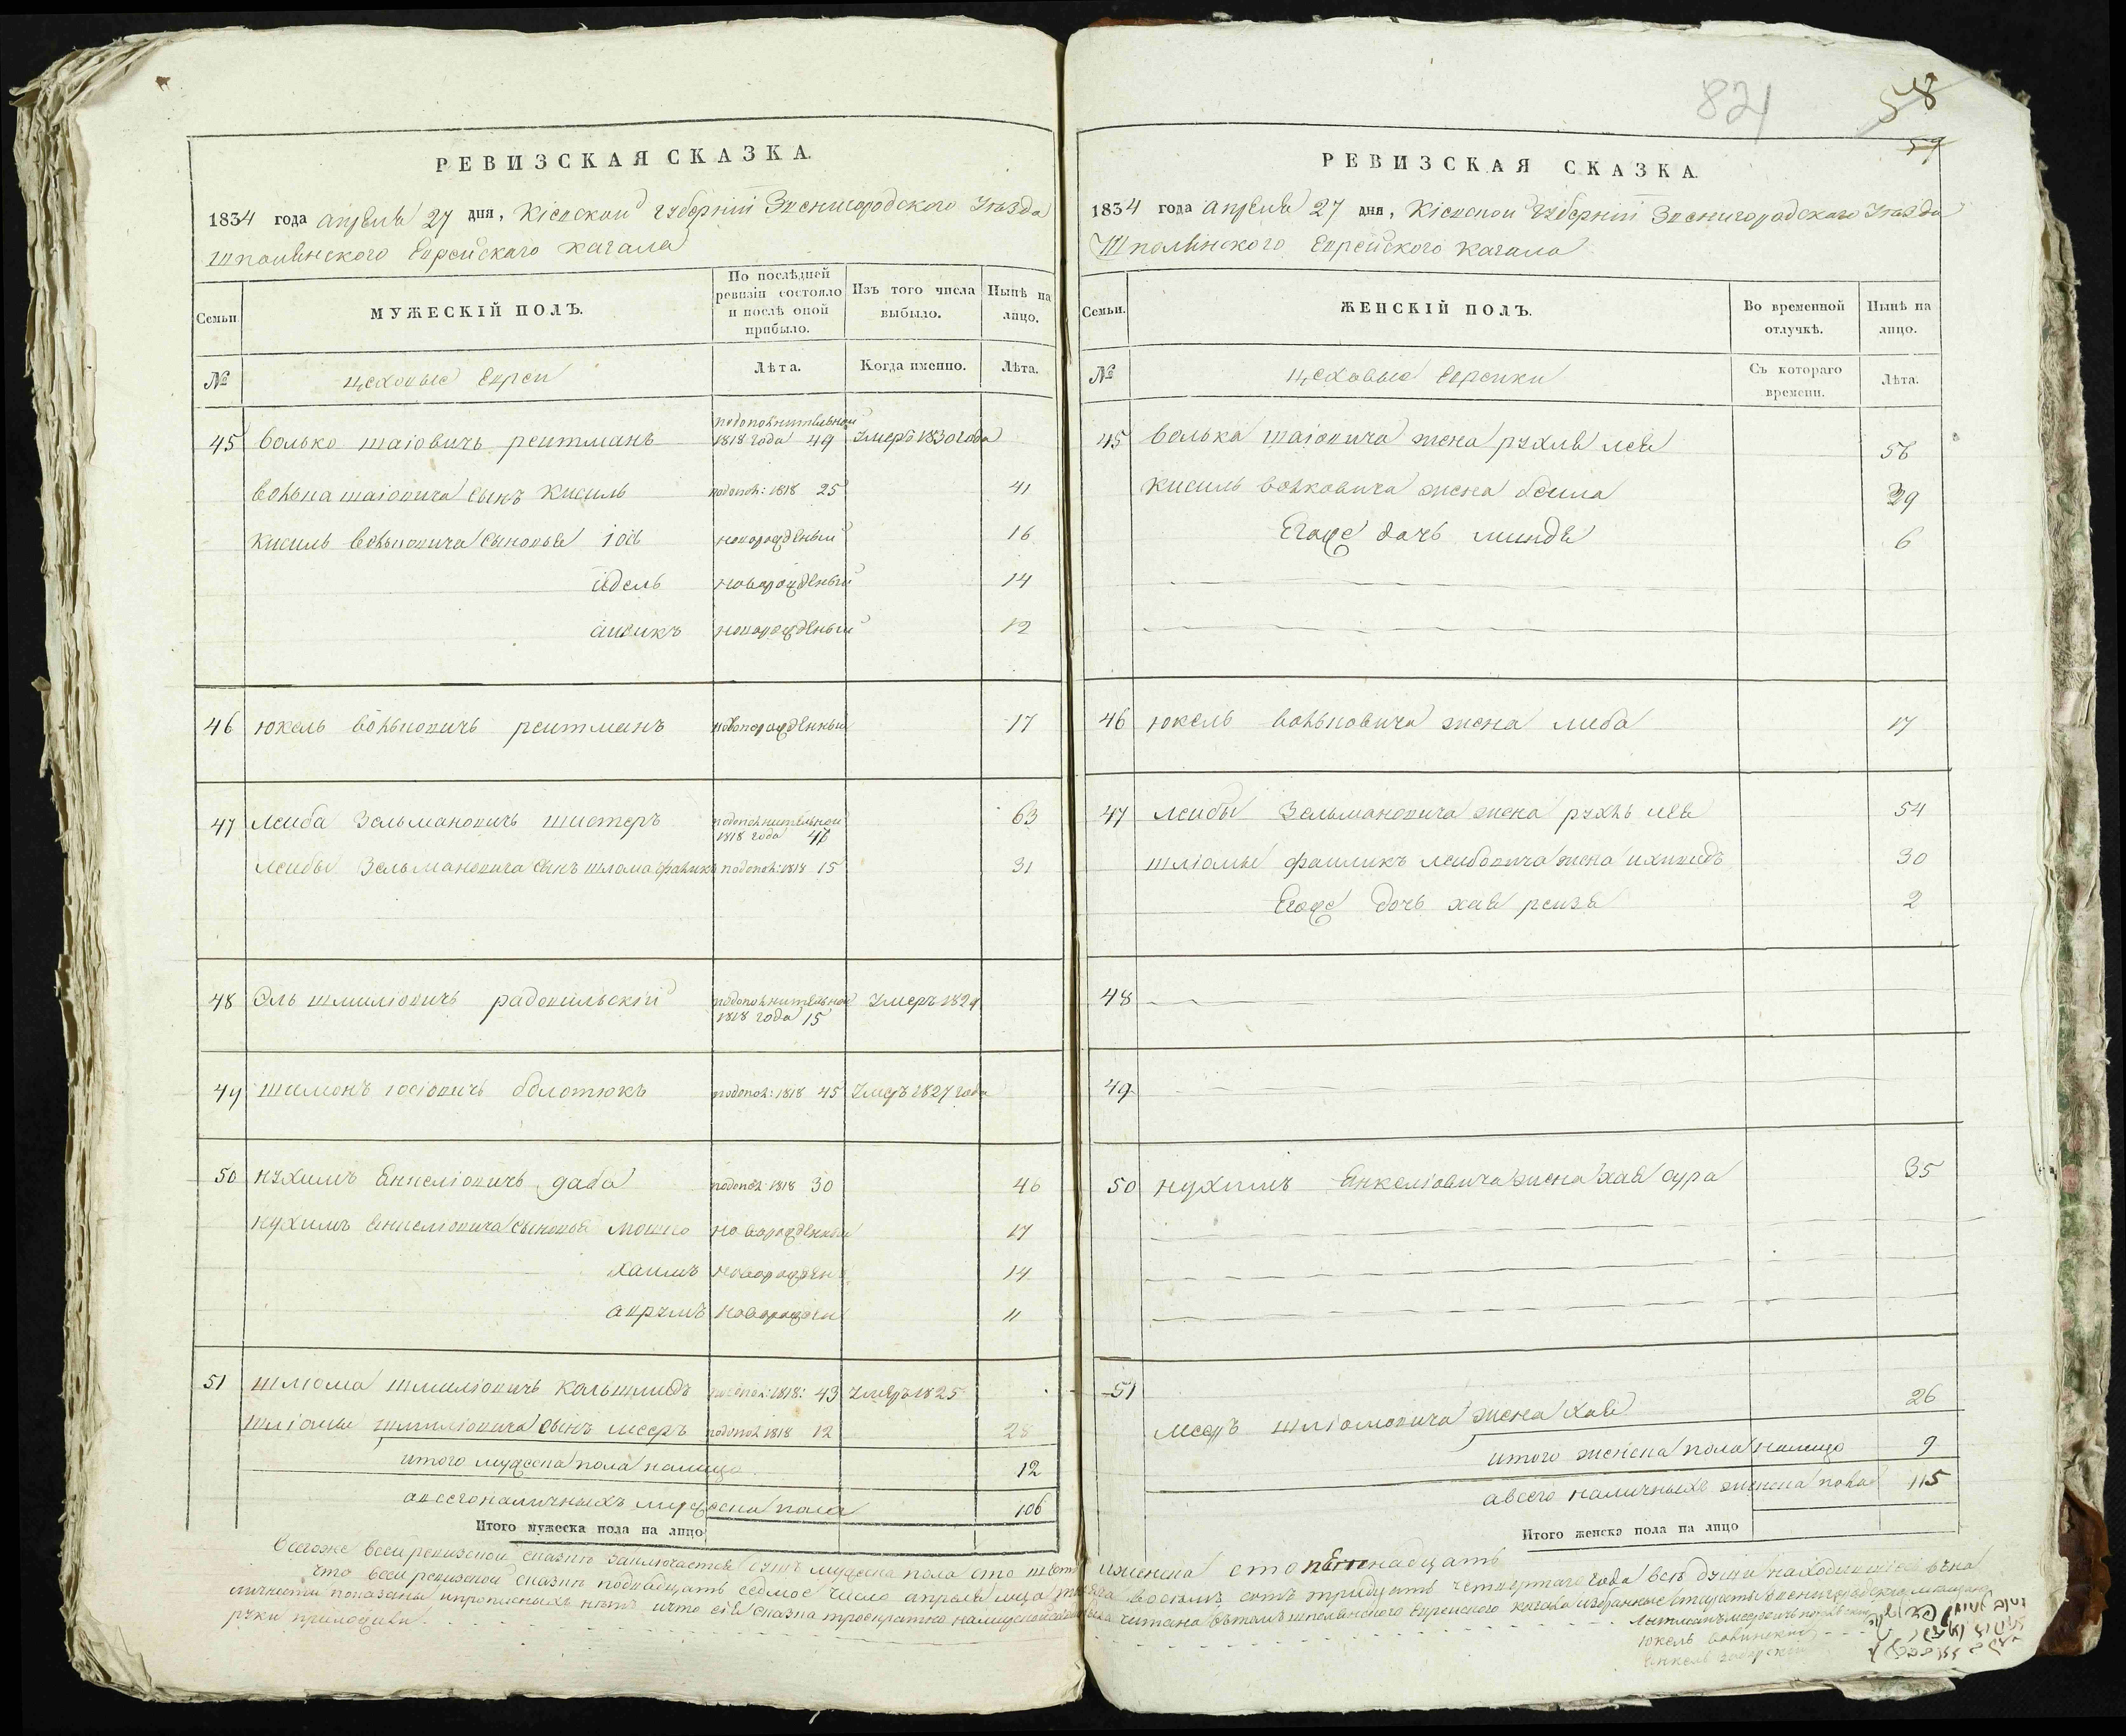 РЕВИЗСКАЯ СКАЗКА.
1834 года апреля 27 дня, Кіевской губерніи Звенигородского Уезда
Шполянского Еврейскаго кагала
Семьи.
МУЖЕСКІЙ ПОЛЪ.
По послѣдней ревизіи состояло и послѣ оной прибыло.
Изъ того числа выбыло.
Нынѣ на лицо.
№
цеховые Евреи
Лѣта.
Когда именно.
Лѣта.
45 Волько шаіовичъ рейтманъ подополнительной 1818 года 49 Умеръ 1830 года
Волька шаіовича сынъ Кисиль подопол: 1818 25 41
Кисиль Волковича сыновья іось новорожденый 16
идель новорожденый 14
аизикъ новорожденый 12
46 Юкель Вольковичъ рейтманъ новорожденный 17
47 Лейба Зельмановичъ шистеръ подополнительной 1818 года 47 63
Лейбы Зельмановича сынъ шлома файликъ подопол: 1818 15 31
48 Эль шмиліовичъ радомильскій подополнительной 1818 года 15 Умеръ 1824
49 шимонъ іосіовичъ болотюкъ подопол: 1818 45 Умеръ 1827 года
50 Нухимъ Енкеліовичъ даба подопол: 1818 30 46
Нухимъ Енкеліовича сыновья мошко новорожденный 17
хаимъ новорожден 14
аврумъ новорожден 11
51 шлиома шмиліовичъ Кольшмидъ подопол: 1818: 43 Умеръ 1825
шліомы шмиліовича сынъ мееръ подопол 1818 12 28
итого мужеска пола налицо 12
а всего наличныхъ мужеска пола 106
Итого мужеска пола на лицо
82
58
59
РЕВИЗСКАЯ СКАЗКА.
1834 года апреля 27 дня, Кіевской Губерніи Звенигородскаго Уезда
Шполянского Еврейского Кагала
Семьи.
ЖЕНСКІЙ ПОЛЪ.
Во временной отлучкѣ.
Нынѣ на лицо.
№
цеховые Еврейки
Съ котораго времени.
Лѣта.
45 Волька шаіовича жена рухля лея 56
Кисиль Волковича жена бейла 39
Егоже дочь минде 6
46 Юкель Вольковича жена либа 17
47 Лейбы Зельмановича жена рухль лея 54
шліомы файликъ лейбовича жена 30
Егоже дочь хае рейзе 2
48
49
50 Нухимъ Енкеліовича жена хая сура 35
51
мееръ шліомовича жена хая 26
итого женска пола налицо 9
а всего наличныхъ женска пола 115
Итого женска пола на лицо
Всегоже всей ревизской сказки заключается душъ мужеска пола сто шесть и женска сто пятнадцать
что всей ревизской сказки подвадцать седмое число апреля месяца тысяча восемь сотъ тридцать четвертаго года все души находившіеся
показаны и прописныхъ нетъ и что сія сказка троекратно читана Шполянского Еврейского кагала избранные
руки приложили.
Юкель
Енкель